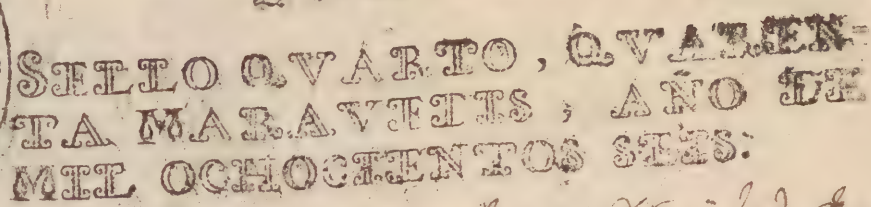 SELLO QVARTO, QVAREN-
TA MARAVEDIS, AÑO DE
MIL OCHOCIENTOS SEIS: